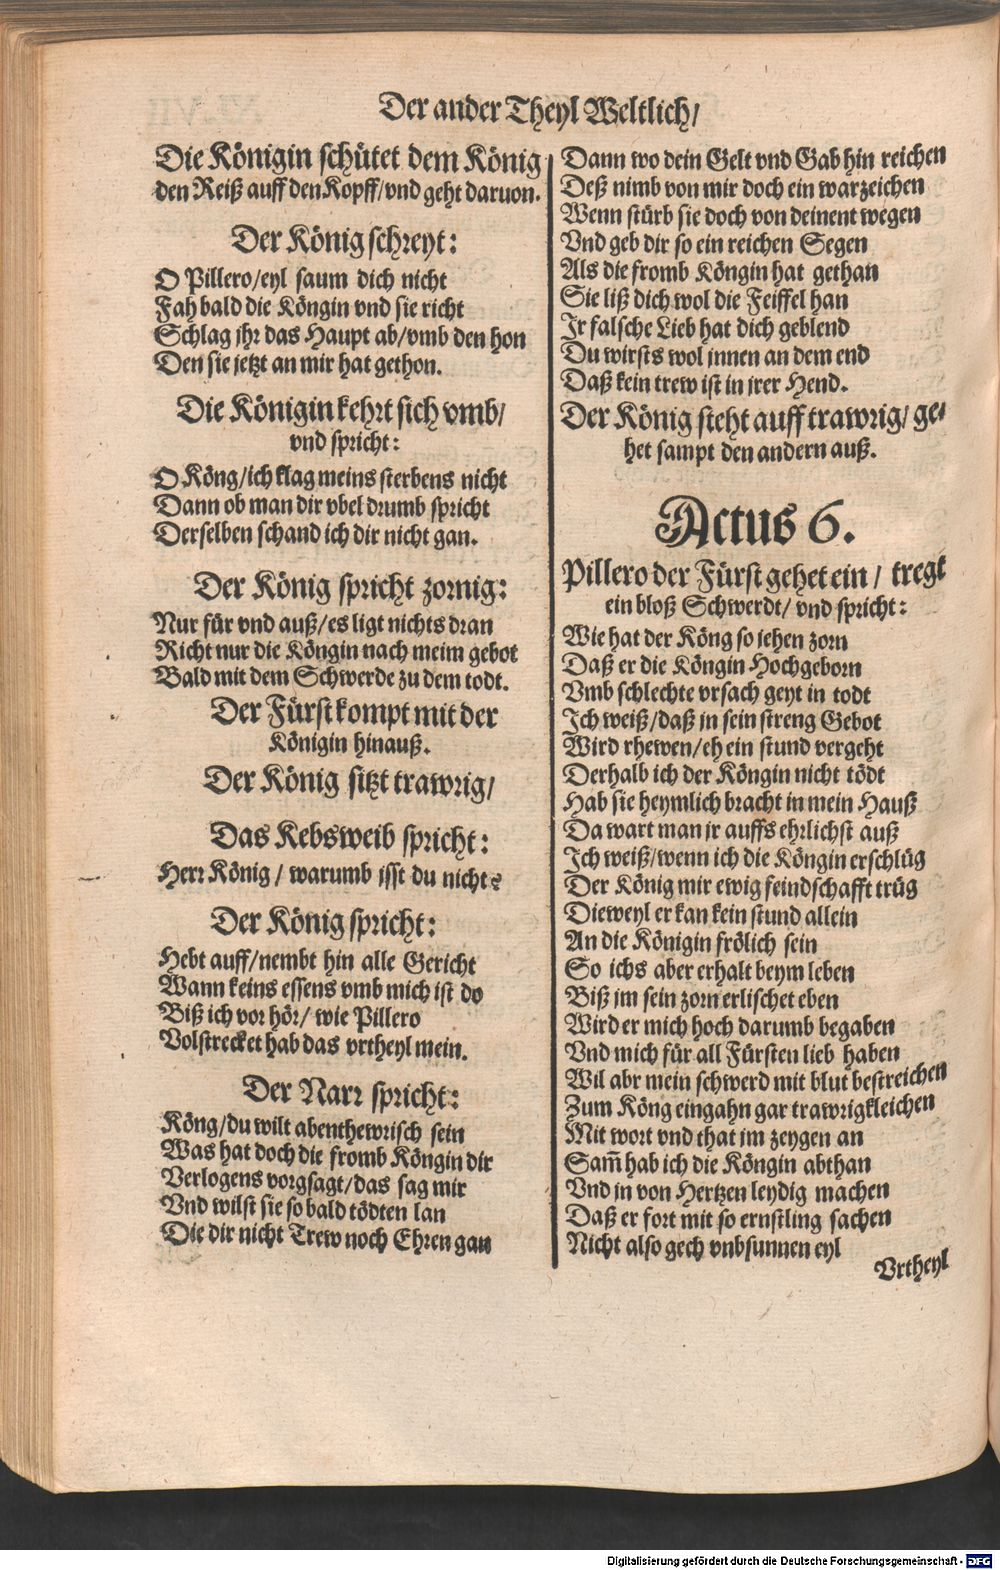 Der ander Theyl Weltlich/
Die Königin schütet dem König
den Reiß auff den Kopff/vnd geht daruon.
Der König schreyt:
O Pillero/eyl saum dich nicht
Fah bald die Köngin vnd sie richt
Schlag jhr das Haupt ab/vmb den hon
Den sie jetzt an mir hat gethon.
Die Königin kehrt sich vmb/
vnd spricht:
O Köng/ich klag meins sterbens nicht
Dann ob man dir vbel drumb spricht
Derselben schand ich dir nicht gan.
Der König spricht zornig:
Nur für vnd auß/es ligt nichts dran
Richt nur die Köngin nach meim gebot
Bald mit dem Schwerde zu dem todt.
Der Fürst kompt mit der
Königin hinauß.
Der König sitzt trawrig/
Das Kebsweib spricht:
Herr König/ warumb isst du nicht?
Der König spricht:
Hebt auff/nembt hin alle Gericht
Wann keins essens vmb mich ist do
Biß ich vor hör/ wie Pillero
Volstrecket hab das vrtheyl mein.
Der Narr spricht:
Köng/du wilt abenthewrisch sein
Was hat doch die fromb Köngin dir
Verlogens vorgsagt/das sag mir
Vnd wilst sie so bald tödten lan
Die dir nicht Trew noch Ehren gan
Dann wo dein Gelt vnd Gab hin reichen
Deß nimb von mir doch ein warzeichen
Wenn stürb sie doch von deinent wegen
Vnd geb dir so ein reichen Segen
Als die fromb Köngin hat gethan
Sie liß dich wol die Feiffel han
Jr falsche Lieb hat dich geblend
Du wirsts wol jnnen an dem end
Daß kein trew ist in jrer Hend.
Der König steht auff trawrig/ ge-
het sampt den andern auß.
Actus 6.
Pillero der Fürst gehet ein/ tregt
ein bloß Schwerdt/ vnd spricht:
Wie hat der Köng so jehen zorn
Daß er die Köngin Hochgeborn
Vmb schlechte vrsach geyt in todt
Ich weiß/daß jn sein streng Gebot
Wird rhewen/eh ein stund vergeht
Derhalb ich der Köngin nicht tödt
Hab sie heymlich bracht in mein Hauß
Da wart man jr auffs ehrlichst auß
Ich weiß/wenn ich die Köngin erschlüg
Der König mir ewig feindschafft trüg
Dieweyl er kan kein stund allein
An die Königin frölich sein
So ichs aber erhalt beym leben
Biß jm sein zorn erlischet eben
Wird er mich hoch darumb begaben
Vnd mich für all Fürsten lieb haben
Wil abr mein schwerd mit blut bestreichen
Zum Köng eingahn gar trawrigkleichen
Mit wort vnd that jm zeygen an
Sam̃ hab ich die Köngin abthan
Vnd jn von Hertzen leydig machen
Daß er fort mit so ernstling sachen
Nicht also gech vnbsunnen eyl
Vrtheyl
Digitalisierung gefördert durch die Deutsche Forschungsgemeinschaft - DFG